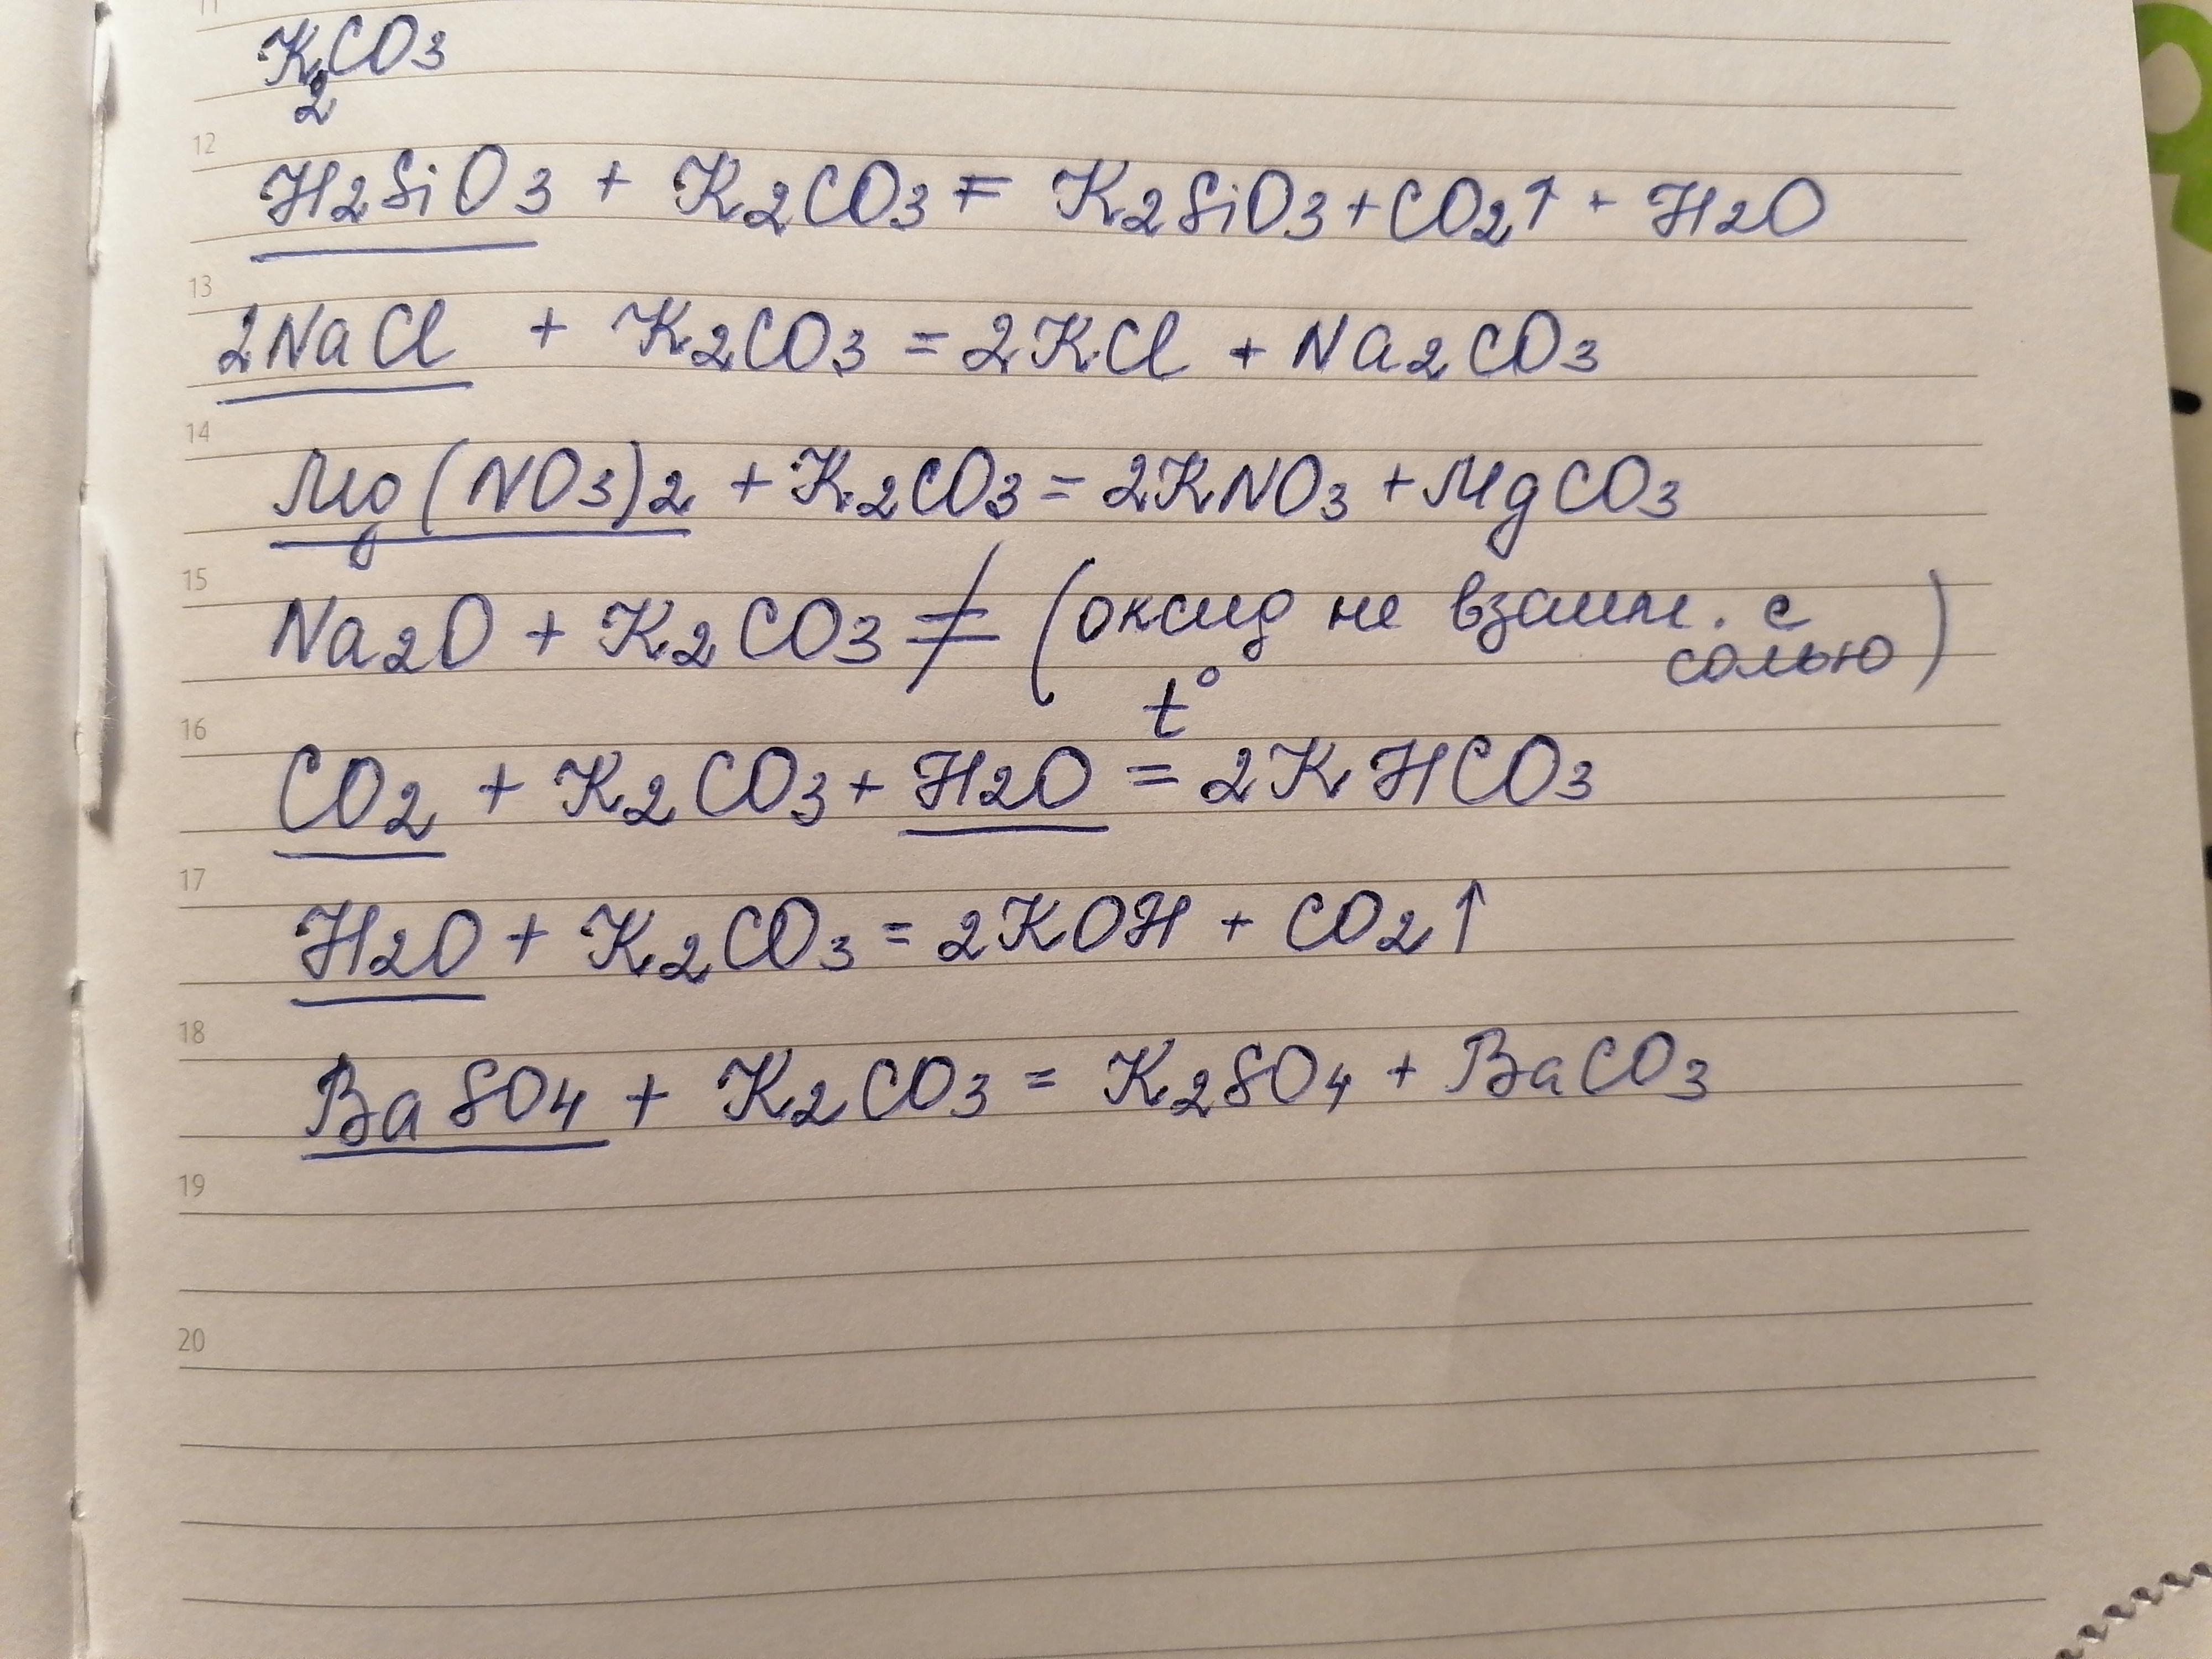 11
K2CO3
12
H2SiO3 + K2CO3 = K2SiO3 + CO2↑ + H2O
13
2NaCl + K2CO3 = 2KCl + Na2CO3
14
Mg(NO3)2 + K2CO3 = 2KNO3 + MgCO3
15
Na2O + K2CO3 ≠ (оксид не взаим. с
солью)
t°
16
CO2 + K2CO3 + H2O = 2KHCO3
17
H2O + K2CO3 = 2KOH + CO2↑
18
BaSO4 + K2CO3 = K2SO4 + BaCO3
19
20